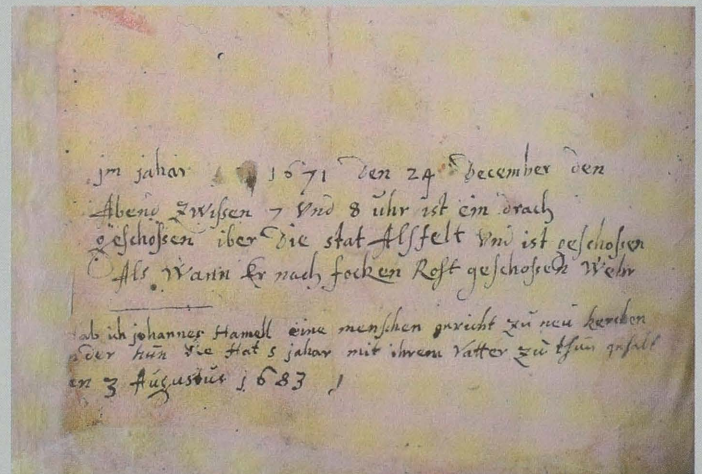 jm jahar 1671 den 24 December den
Abend zwissen 7 Vnd 8 uhr ist ein drach
geschossen iber die stat Alsfelt Vnd ist geschossen
Als Wann Er nach focken Rost geschossen Wehr
ab ich johannes Hamell eine menschen gericht zu neu kerchen
der hun die Hat 5 jahar mit ihrem Vatter zu thun gehalt
en 3 Augustus 1683